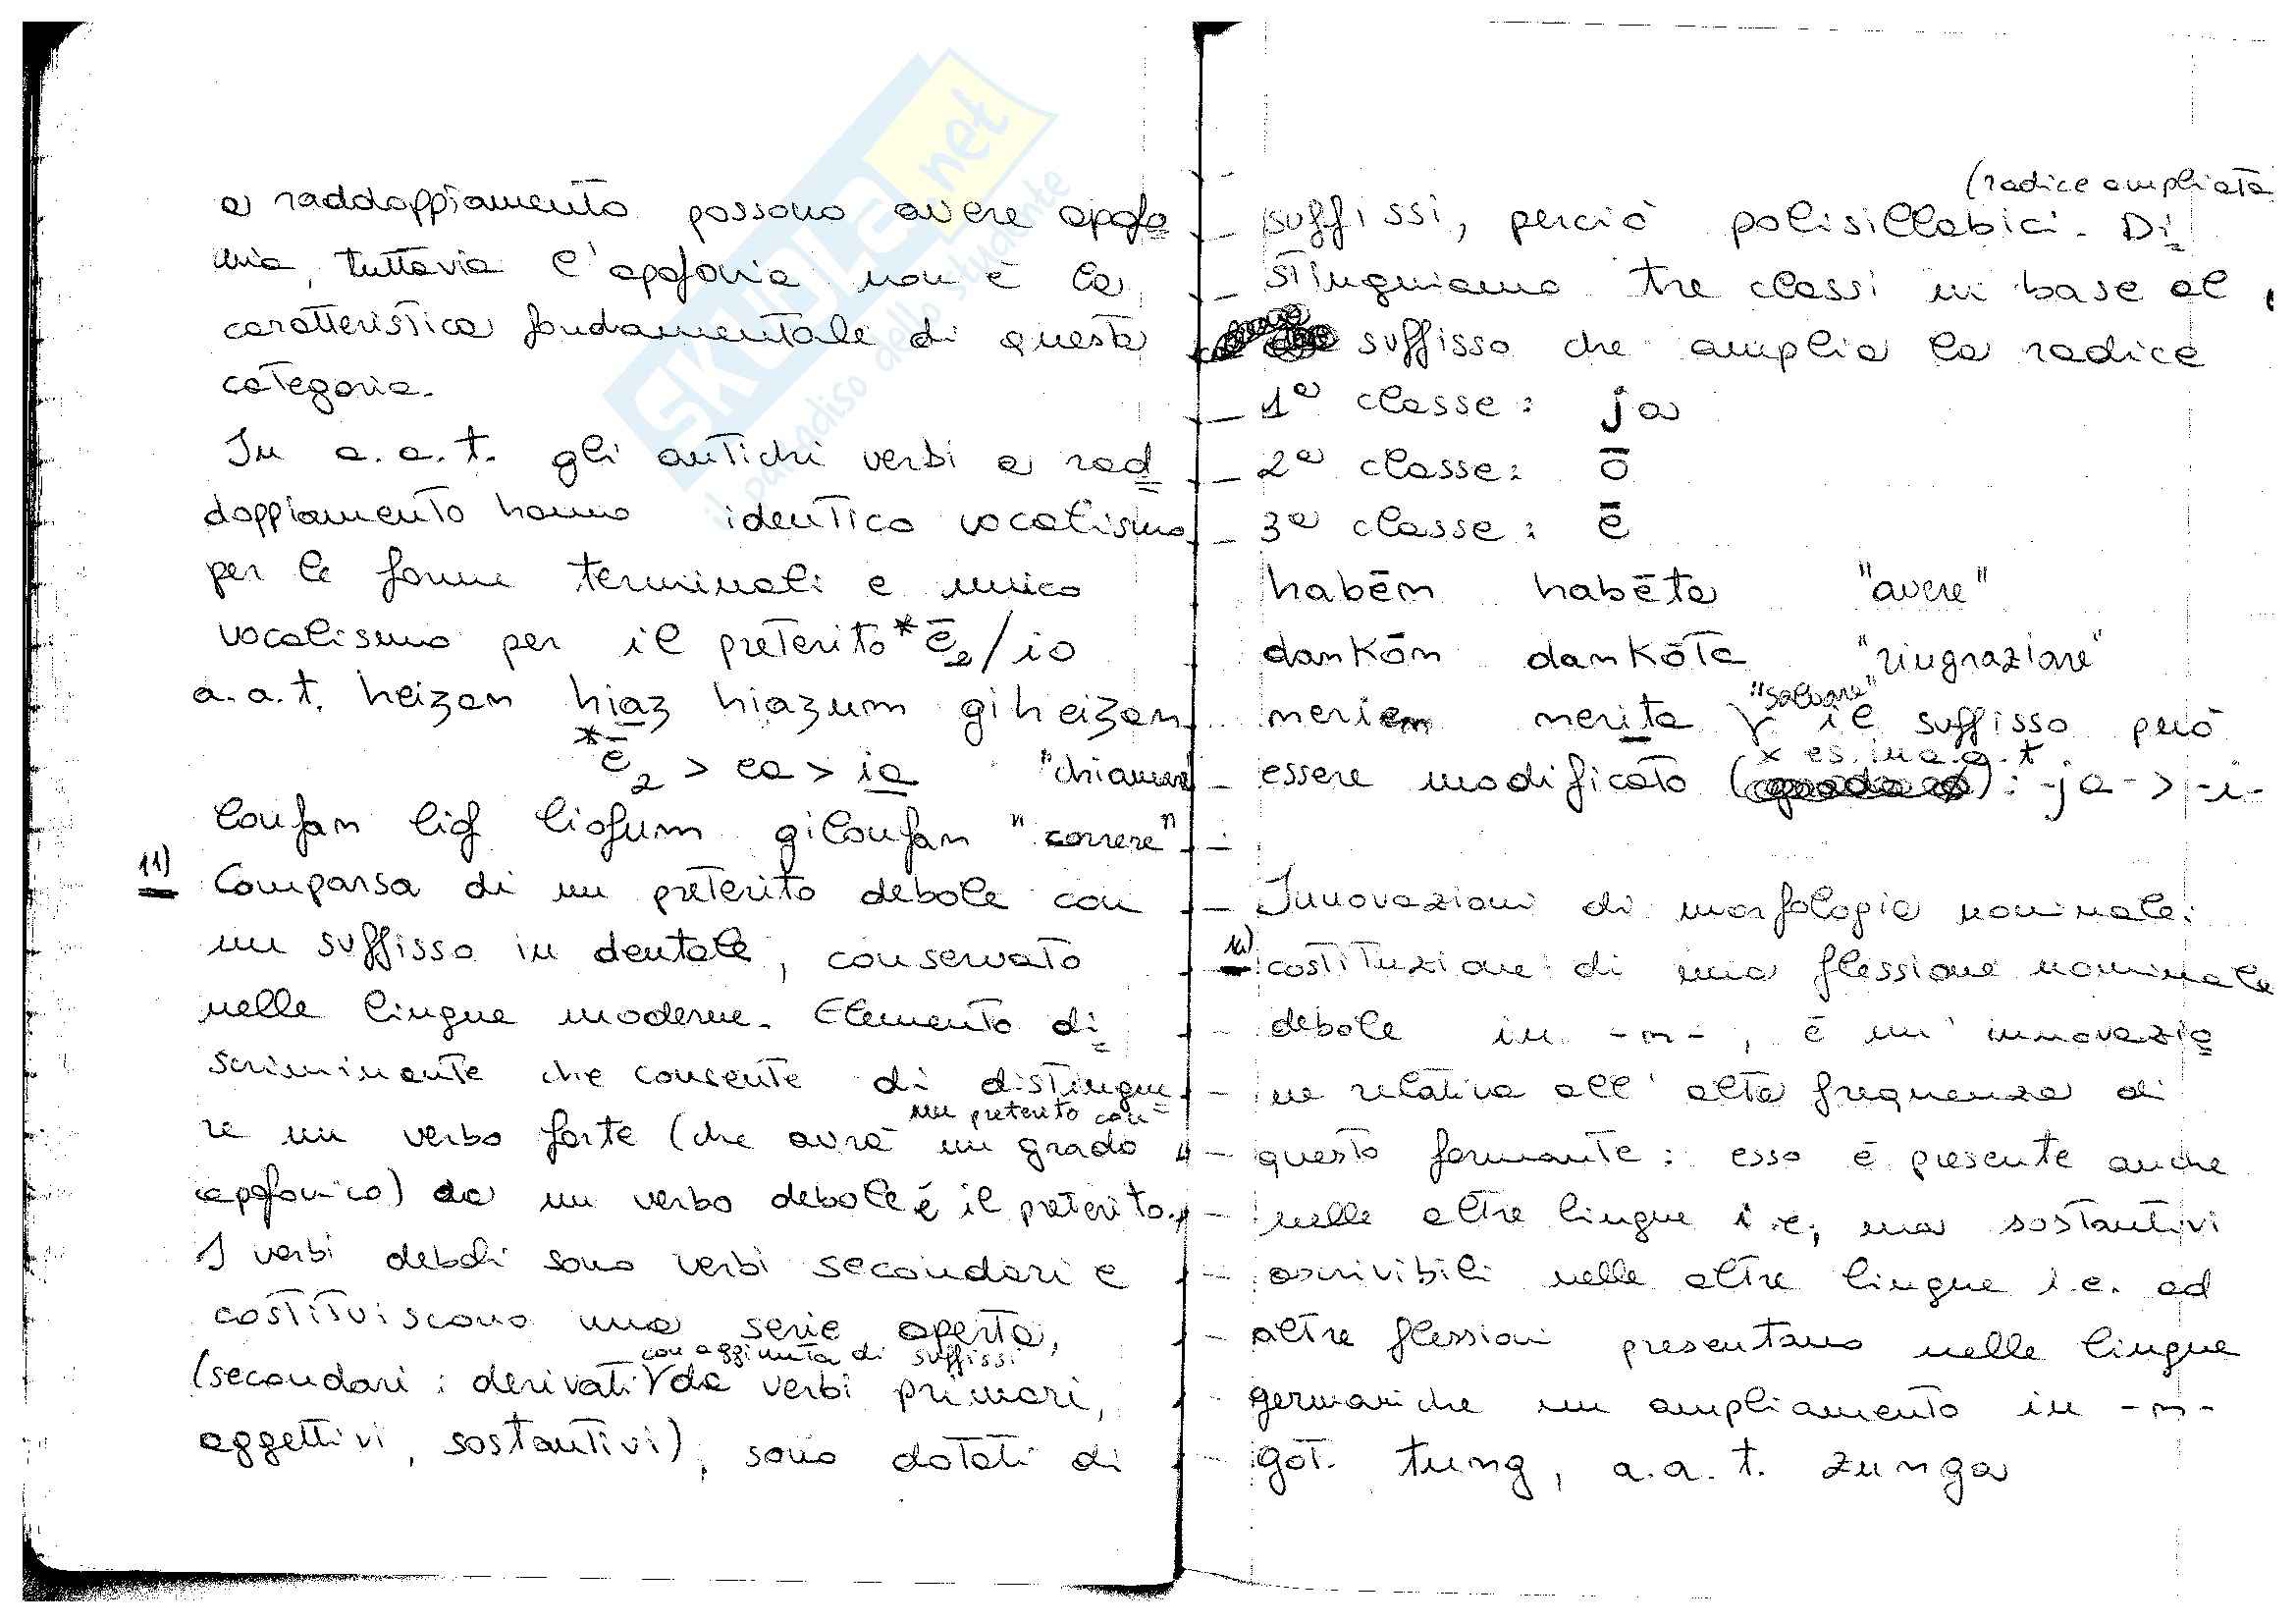 a raddoppiamento possono avere apofo
nia, tuttavia l'apofonia non è la
caratteristica fondamentale di questa
categoria.
In a.a.t. gli antichi verbi a rad
doppiamento hanno identico vocalismo
per le forme terminali e unico
vocalismo per il preterito *ē₂/io
a.a.t. heizan hiaz hiazum giheizan
*ē₂ > ea > ia "chiamare"
loufan liof liofum giloufan "correre"
11) Comparsa di un preterito debole con
un suffisso in dentale, conservato
nelle lingue moderne. Elemento di
scriminante che consente di distingue
un preterito con
re un verbo forte (che avrà un grado
apofonico) da un verbo debole è il preterito.
I verbi deboli sono verbi secondari e
costituiscono una serie aperta,
con aggiunta di suffissi
(secondari: derivati da verbi primari,
aggettivi, sostantivi), sono dotati di
(radice ampliata
suffissi, perciò polisillabici. Di
stinguiamo tre classi in base al
suffisso che amplia la radice
1ª classe: ja
2ª classe: ō
3ª classe: ē
habēn habēta "avere"
dankōn dankōta "ringraziare"
"salvare"
nerien nerita il suffisso può
x es. in a.a.t.
essere modificato ( ): -ja- > -i-
Innovazioni di morfologia nominale:
costituzione di una flessione nominale
debole in -n-, è un'innovazio
ne relativa all'alta frequenza di
questo formante: esso è presente anche
nelle altre lingue i.e; ma sostantivi
ascrivibili nelle altre lingue i.e. ad
altre flessioni presentano nelle lingue
germaniche un ampliamento in -n-
got. tung, a.a.t. zunga
SKUOLA.net
il paradiso dello studente